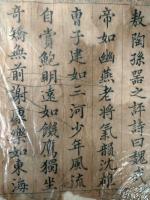 敖陶孫器之評詩曰魏武
帝如幽燕老將氣韻沈雄
曹子建如三河少年風流
自賞鮑明遠如饑鷹獨出
奇矯無前謝康樂如東海